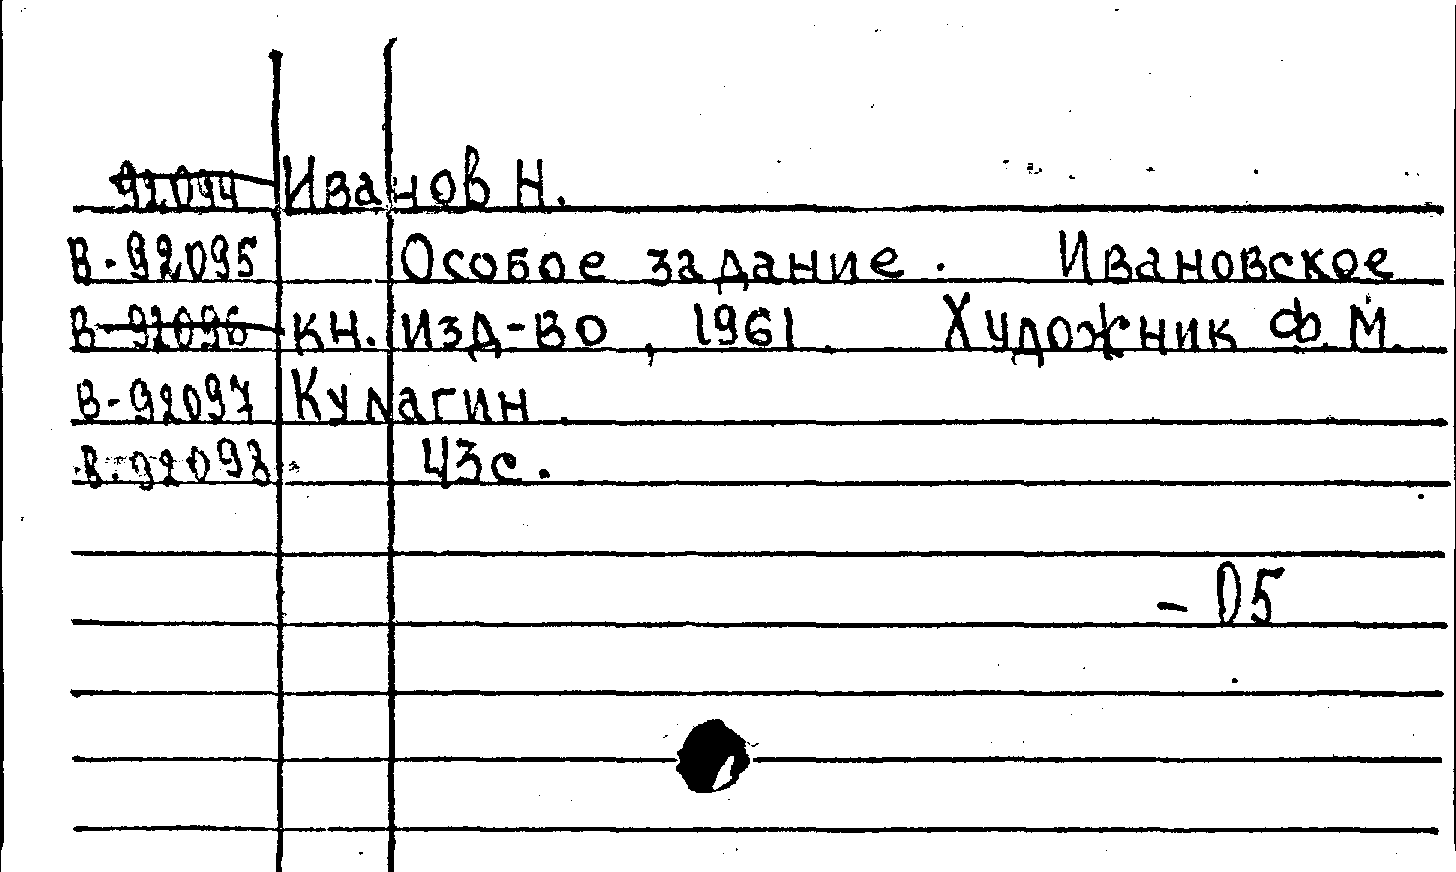 92094 Иванов Н.
В-92095 Особое задание. Ивановское
В-92096 кн. изд-во, 1961. Художник Ф.М.
В-92097 Кулагин.
В-92098 43с.
- 05